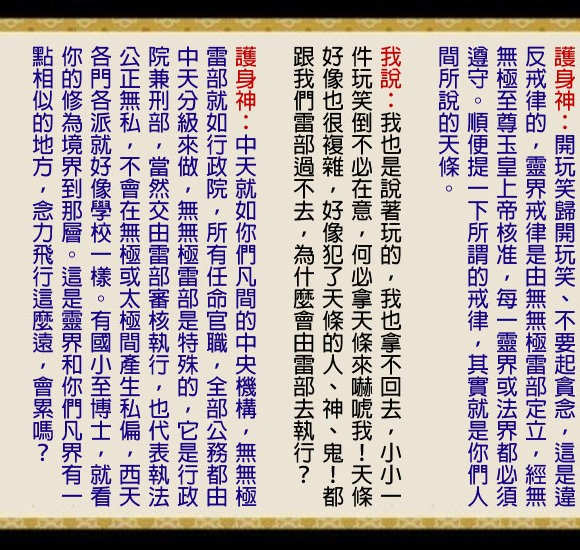 護身神：開玩笑歸開玩笑、不要起貪念，這是違
反戒律的，靈界戒律是由無無極雷部定立，經無
無極至尊玉皇上帝核准，每一靈界或法界都必須
遵守。順便提一下所謂的戒律，其實就是你們人
間所說的天條。
我說：我也是說著玩的，我也拿不回去，小小一
件玩笑倒不必在意，何必拿天條來嚇唬我！天條
好像也很複雜，好像犯了天條的人、神、鬼！都
跟我們雷部過不去，為什麼會由雷部去執行？
護身神：中天就如你們凡間的中央機構，無無極
雷部就如行政院，所有任命官職，全部公務都由
中天分級來做，無無極雷部是特殊的，它是行政
院兼刑部，當然交由雷部審核執行，也代表執法
公正無私，不會在無極或太極間產生私偏，西天
各門各派就好像學校一樣。有國小至博士，就看
你的修為境界到那層。這是靈界和你們凡界有一
點相似的地方，念力飛行這麼遠，會累嗎？